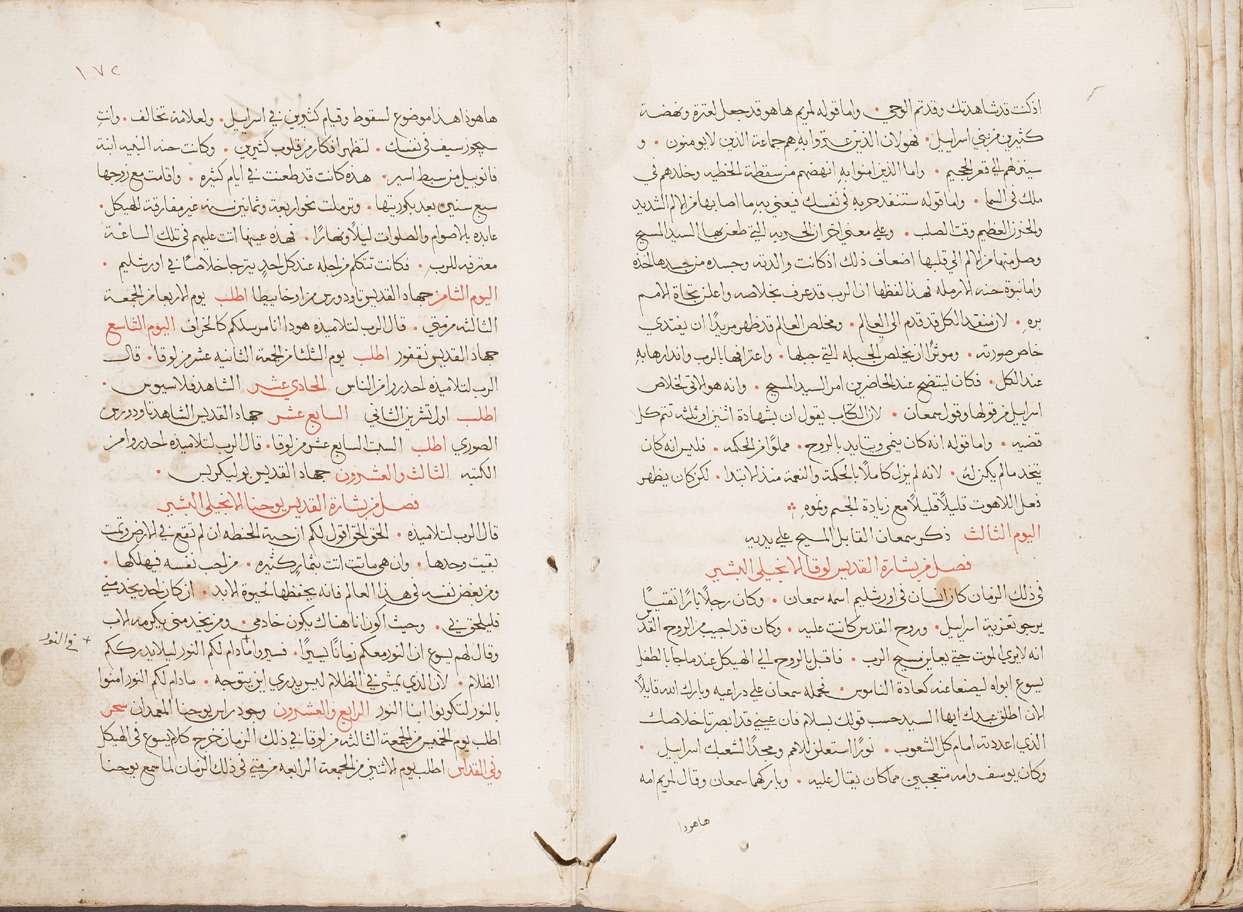 اذ كنت قد شاهدتك وقدتم الوحي • واما قوله لمريم ها هو قد جعل لعثرة ونهضة
كثيرين من بني اسراييل • فهو لان الذين عثروا به هم جماعة الذين لا يومنون • و
سينزلهم الي قعر الجحيم • واما الذين امنوا به انهضهم من سقطة الخطيه وخلدهم في
ملك في السما • واما قوله ستنفد حربه في نفسك فيعني به ما اصابها من الالم الشديد
والحزن العظيم وقت الصلب • وعلي معني اخر ان الحربه التي طعن بها السيد المسيح
وصل منها من الالم الي قلبها اضعاف ذلك اذ كانت والدته وجسده من جسدها اخذه
واما نبوة حنه الارمله فهذا لفظها ان الرب قد عرف بخلاصه واعلن بنجاة الامم
بره • لان منقذ الكل قد قدم الي العالم • ومخلص العالم قد ظهر مريدًا ان يفتدي
خاص صورته • وموثرًا ان يخلص الجبله التي جبلها • واعترافها بالرب وانذارها به
عند الكل • فكان ليتضح عند الحاضرين امر السيد المسيح • وانه هو الاتي لخلاص
اسراييل من قولها وقول سمعان • لان الكتاب يقول ان بشهادة اثنين او ثلثه تتم كل
قضيه • واما قوله انه كان ينمي ويتايد بالروح • مملوًا من الحكمه • فليس انه كان
يتخد ما لم يكن له • لانه لم يزل كاملًا بالحكمة والنعمة منذ الابتدا • لكن كان يظهر
فعل اللاهوت قليلًا قليلًا مع زيادة الجسم ونموه
اليوم الثالث ذكر سمعان القابل المسيح علي يديه
فصل من بشارة القديس لوقا الانجيلي البشير
في ذلك الزمان كان انسان في اورشليم اسمه سمعان • وكان رجلًا بارًا تقيًا
يرجو تعزية اسراييل • وروح القدس كانت عليه • وكان قد اجيب من الروح القد
انه لا يري الموت حتي يعاين مسيح الرب • فاقبل بالروح الي الهيكل عند ما جا بالطفل
يسوع ابواه ليصنعا عنه كعادة الناموس • فحمله سمعان علي دراعيه وبارك الله قايلًا
الان اطلق عبدك ايها السيد حسب قولك بسلام فان عيني قد ابصرتا خلاصك
الذي اعددته امام كل الشعوب • نورًا استعلن للامم ومجدًا لشعبك اسراييل •
وكان يوسف وامه متعجبين مما كان يقال عليه • وباركهما سمعان وقال لمريم امه
ها هودا
١٧٤
ها هوذا هذا موضوع لسقوط وقيام كثيرين في اسراييل • ولعلامة تخالف • وانتِ
سيجوز سيف في نفسك • لتظهر افكار من قلوب كثيرين • وكانت حنه النبيه ابنة
فانوييل من سبط اسير • هذه كانت قد طعنت في ايام كثيره • واقامت مع زوجها
سبع سنين بعد بكوريتها • وترملت نحو اربعة وثمانين سنه غير مفارقة الهيكل •
عابده بالاصوام والصلوات ليلًا ونهارًا • فهذه عينها اتت عليهم في تلك الساعة
معترفه للرب • فكانت تتكلم من اجله عند كل احد يترجا خلاصًا في اورشليم •
اليوم الثامن جهاد القديس تاودورس من ارخايطا اطلب يوم الاربعا من الجمعة
الثالثه من متي • قال الرب لتلاميذه هوذا انا مرسلكم كالخراف اليوم التاسع
جهاد القديس نقفور اطلب يوم الثلثا من الجمعة الثانيه عشر من لوقا • قال
الرب لتلاميذه احدروا من الناس الحادي عشر الشاهد فلاسيوس •
اطلب اول تشرين الثاني السابع عشر جهاد القديس الشاهد تاودورس
الصوري اطلب السبت السابع عشر من لوقا • قال الرب لتلاميذه احدروا من
الكتبه الثالث والعشرون جهاد القديس بوليكربس •
فصل من بشارة القديس يوحنا الانجيلي البشير
قال الرب لتلاميذه • الحق الحق اقول لكم ان حبة الحنطه ان لم تقع في الارض وتمت
بقيت وحدها • وان هي ماتت اتت بثمار كثيره • من احب نفسه فيهلكها •
ومن بغض نفسه في هذا العالم فانه يحفظها لحيوة الابد • ان كان احد يخدمني
فليلحق بي • وحيث اكون انا هناك يكون خادمي • ومن يخدمني يكرمه الاب
وقال لهم يسوع ان النور معكم زمانًا يسيرًا • فسيروا ما دام لكم النور ليلا يدرككم
+ في النور
الظلام • لان الذي يمشي في الظلام ليس يدري اين يتوجه • ما دام لكم النور امنوا
بالنور لتكونوا ابنا النور الرابع والعشرون وجود راس يوحنا المعمدان سحر
اطلب يوم الخميس من الجمعة الثالثه من لوقا في ذلك الزمان خرج كلام يسوع في الهيكل
وفي القداس اطلب يوم الاثنين من الجمعة الرابعه من متي في ذلك الزمان لما سمع يوحنا